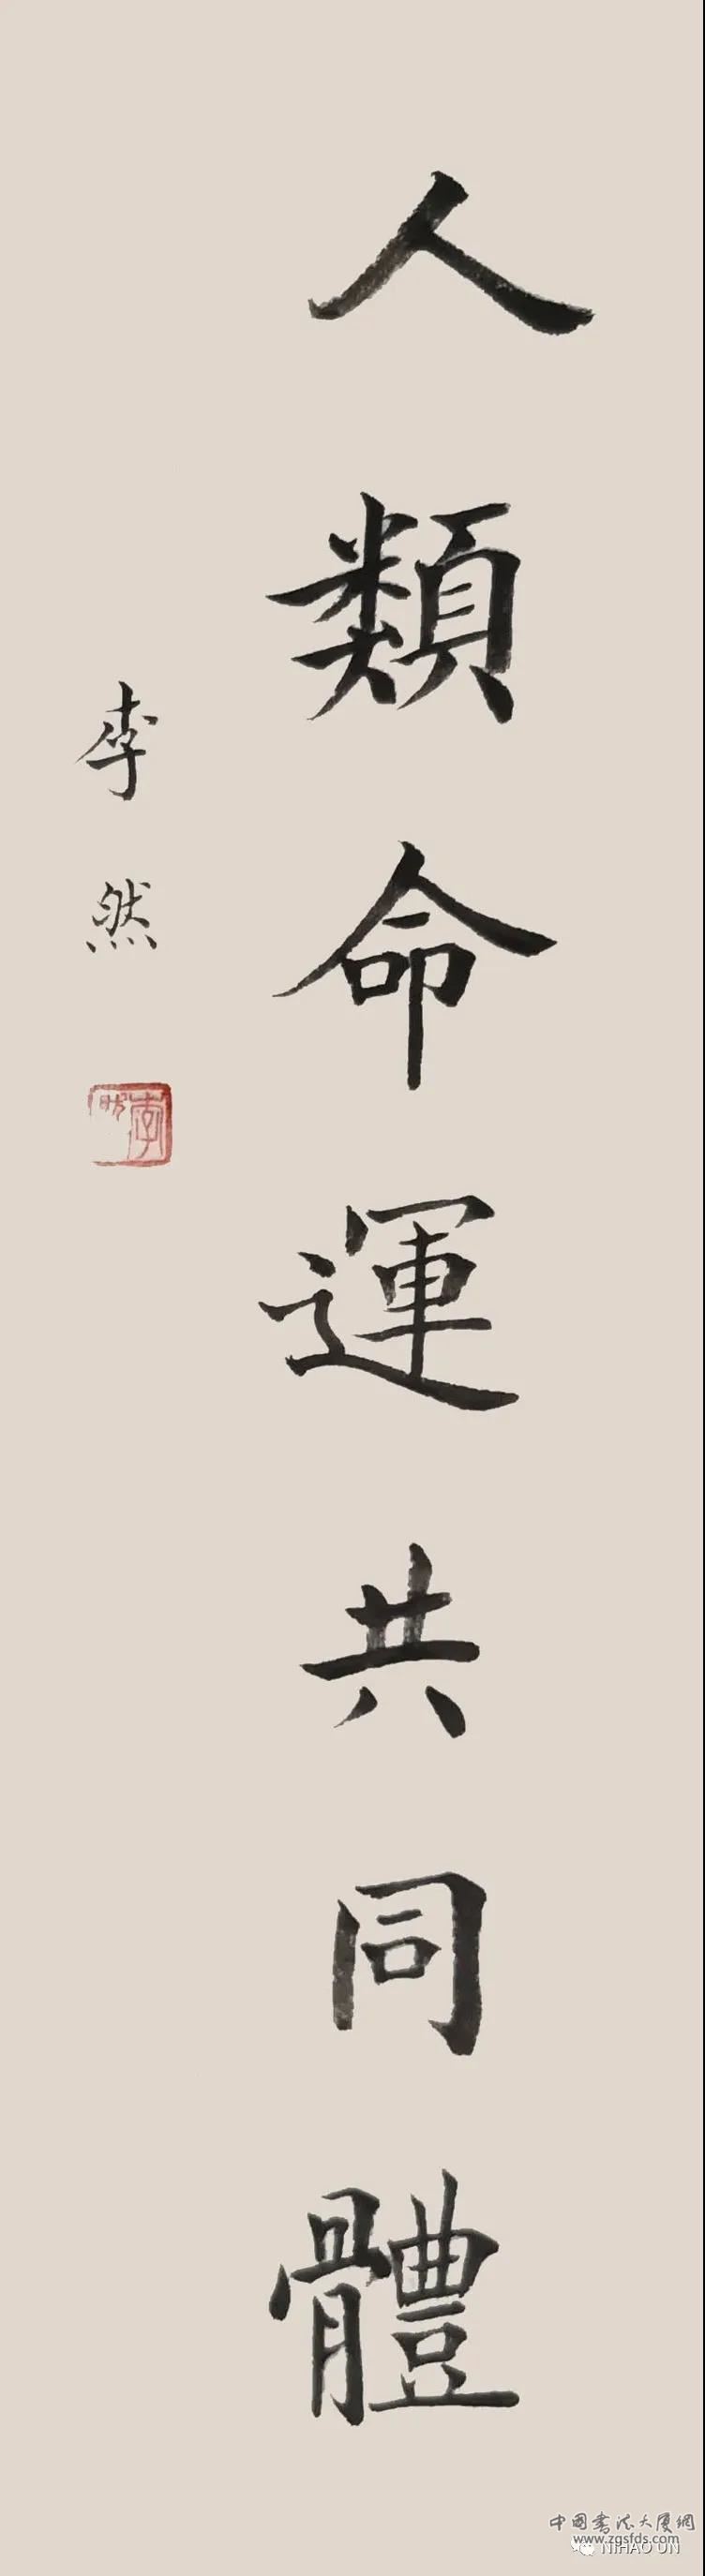 人類命運共同體
李然
中国书法大厦网
www.zgsfds.com
NIHAO UN